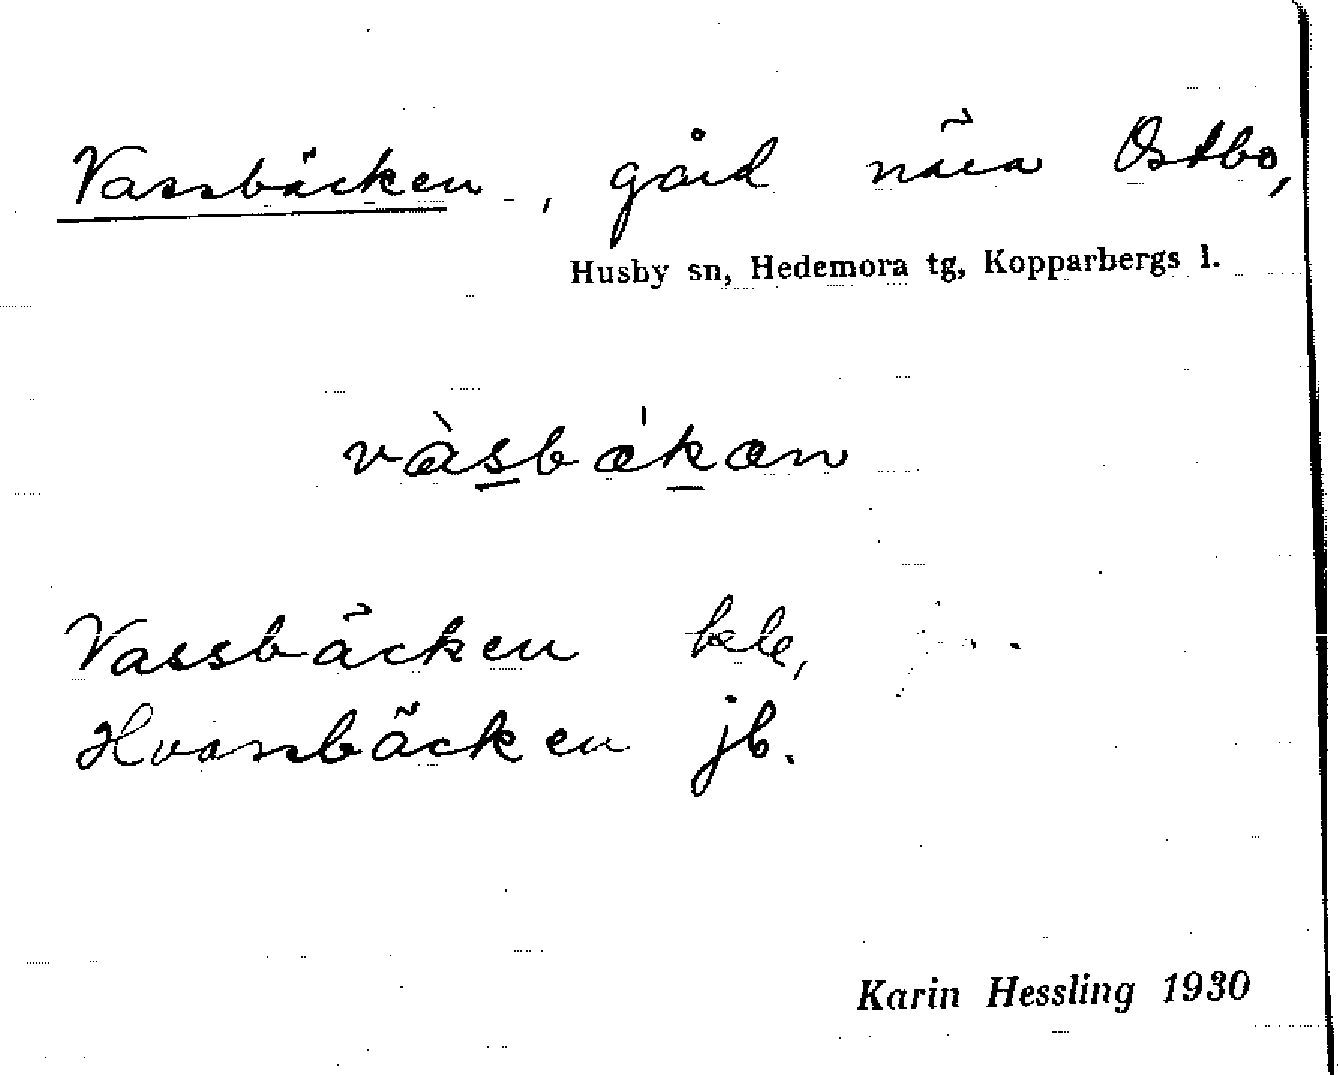 Vassbäcken, gård nära Ostbo,
Husby sn, Hedemora tg, Kopparbergs l.
vàsbǽkæn
Vassbäcken kle,
Hvassbäcken jb.
Karin Hessling 1930